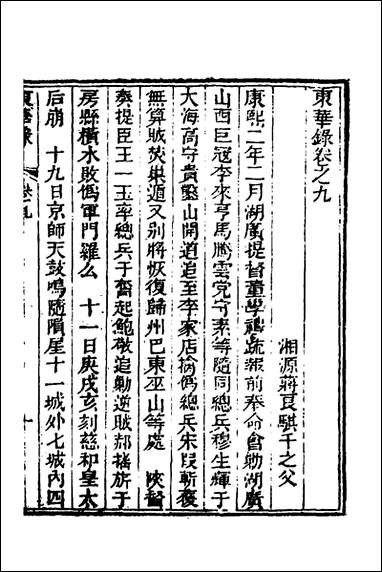 東華錄卷之九
湘源蔣良騏千之父
康熙二年二月湖廣提督董學禮疏報前奉命會勦湖廣
山西巨寇李來亨馬騰雲党守素等隨同總兵穆生輝于
大海高守貴 山開道追至李家店擒僞總兵宋段斬獲
無算賊焚巢遁又别將恢復歸州巴東巫山等處　陝督
奏提臣王一正率總兵于奮起鮑敬追勦逆賊郝搖旂于
房縣橫水敗僞軍門羅么　十一日庚戌亥刻慈和皇太
后崩　十九日京師天鼓鳴隨隕星十一城外七城內四
東華錄
卷九
一